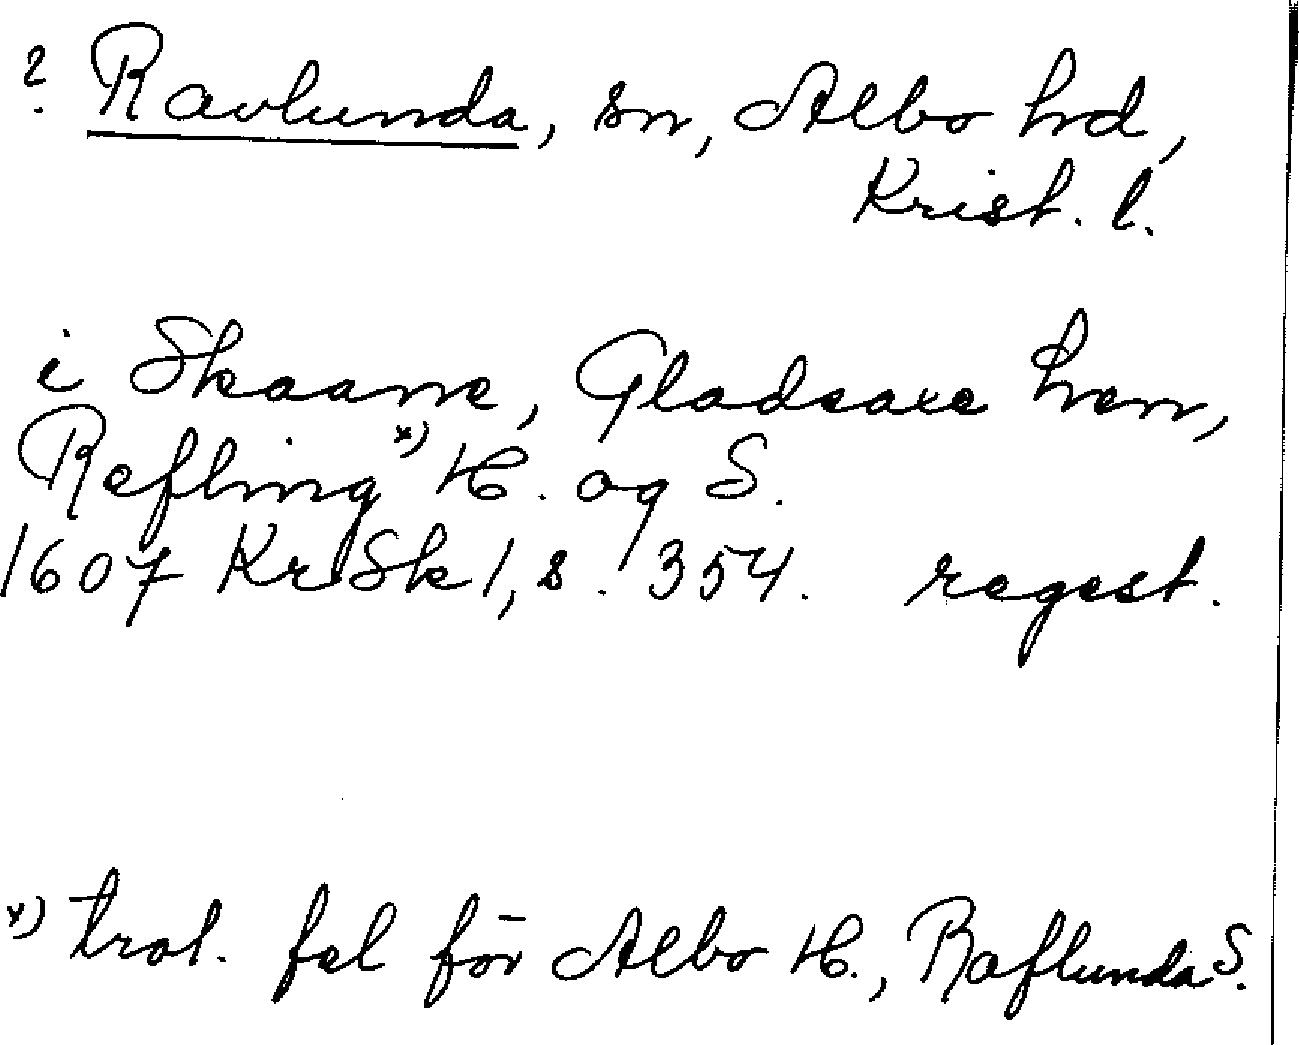 ? Ravlunda, sn, Albo hd,
Krist. l.
i Skaane, Gladsaxe hen,
Refling x) H. og S.
1607 KrSk 1, s. 354. regest.
x) trol. fel för Albo H., Raflunda S.